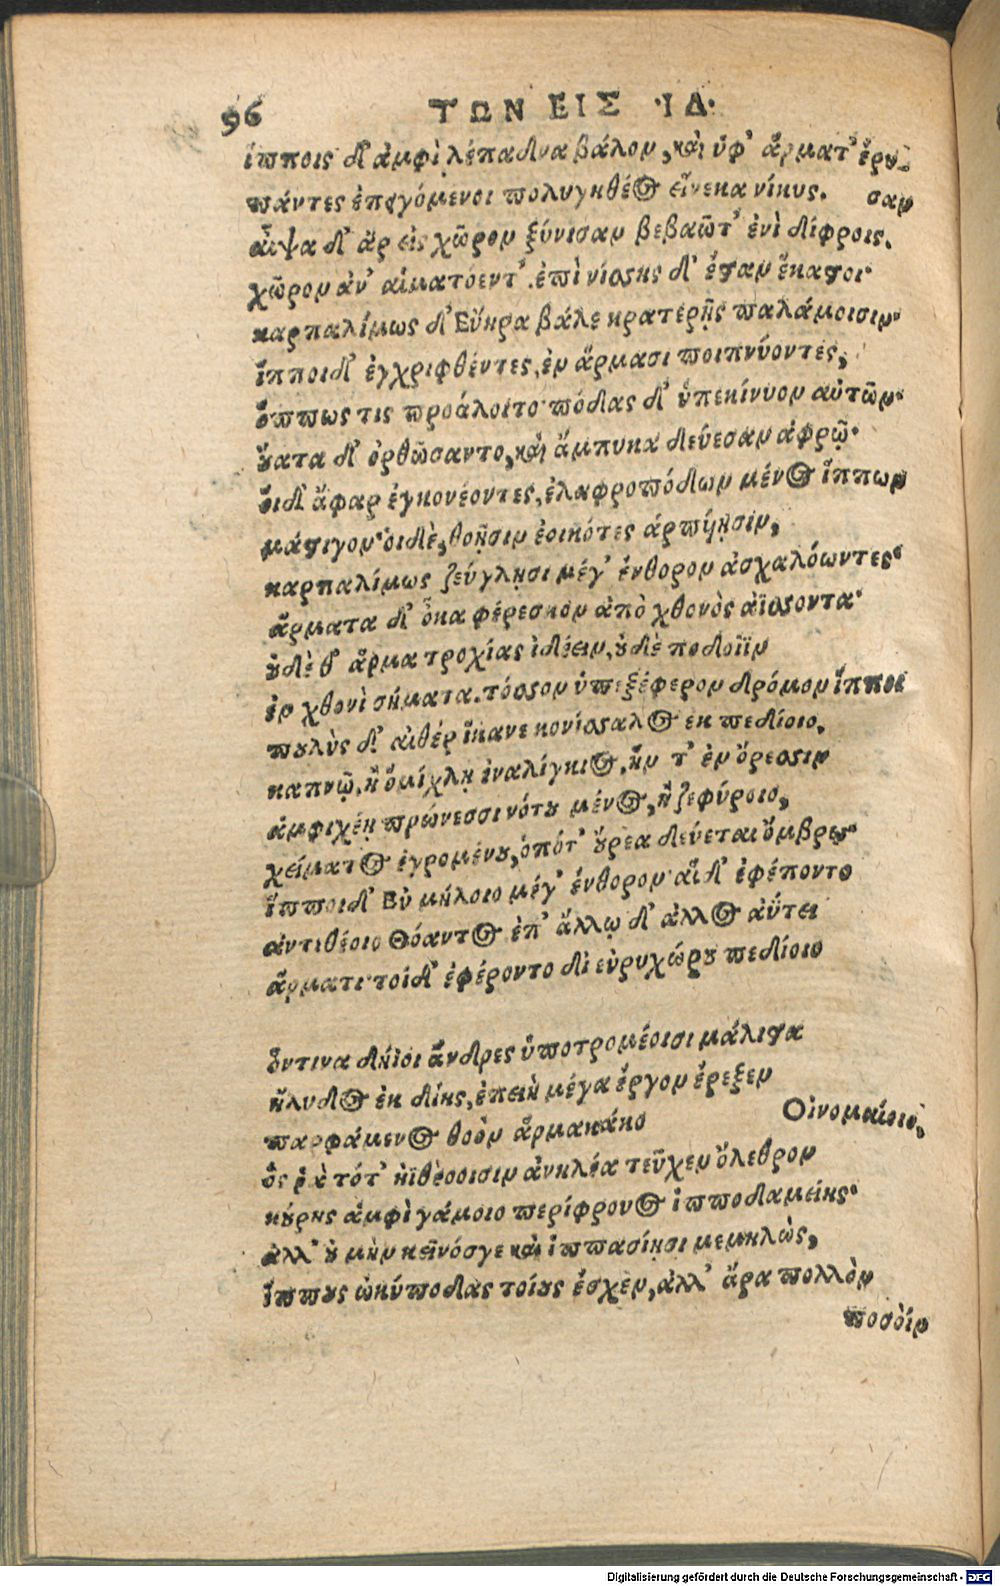 96 ΤΩΝ ΕΙΣ ·ΙΔ·
ἵπποις δ' ἀμφὶ λέπαδνα βάλον, καὶ ὑφ' ἅρματ' ἔρυ-
πάντες ἐπειγόμενοι πολυγηθέος εἵνεκα νίκης. σαν
αἶψα δ' ἄρ εἰς χῶρον ξύνισαν βεβαῶτ' ἐνὶ δίφροις.
χῶρον ἀν' αἱματόεντ'. ἐπὶ νίσσης δ' ἔσταν ἕκαστοι·
καρπαλίμως δ' Εὔηρα βάλε κρατερῇς παλάμοισιν·
ἵπποι δ' ἐγχριφθέντες, ἐν ἅρμασι ποιπνύοντες,
ὅππως τις προάλοιτο· πόδας δ' ὑπεκίνυον αὐτῶν·
οὔατα δ' ὀρθῶσαντο, καὶ ἄμπυκα δεύεσαν ἀφρῷ·
οἱ δ' ἄφαρ ἐγκονέοντες, ἐλαφροπόδων μένος ἵππων
μάστιγον· οἱ δὲ, θοῇσιν ἐοικότες ἁρπύῃσιν,
καρπαλίμως ζεύγλῃσι μέγ' ἔνθορον ἀσχαλόωντες·
ἅρματα δ' ὦκα φέρεσκον ἀπὸ χθονὸς ἀΐσσοντα·
οὐδὲ θ' ἁρματροχίας ἰδέειν, οὐδὲ ποδοῖϊν
ἐν χθονὶ σήματα. τόσσον ὑπεξέφερον δρόμον ἵπποι
πουλὺς δ' αἰθέρ ἵκανε κονίσσαλος ἐκ πεδίοιο.
καπνῷ, ἢ ὁμίχλῃ ἐναλίγκιος, ἥν τ' ἐν ὄρεσσιν
ἀμφιχέῃ πρώνεσσι νότου μένος, ἢ ζεφύροιο,
χείματος ἐγρομένου, ὁπότ' οὔρεα δεύεται ὄμβρῳ·
ἵπποι δ' Εὐμήλοιο μέγ' ἔνθορον· αἳ δ' ἐφέποντο
ἀντιθέοιο Θόαντος ἐπ' ἄλλῳ δ' ἄλλος ἀΰτει
ἅρματι· τοὶ δ' ἐφέροντο δι εὐρυχώρου πεδίοιο
ὅντινα δήϊοι ἄνδρες ὑποτρομέοισι μάλιστα
ἤλυδος ἐκ δίης, ἐπειὴ μέγα ἔργον ἔρεξεν
παρφάμενος θοὸν ἅρμα κάκο Οἰνομαίοιο,
ὅς ῥὰ τότ' ἠϊθέοσισιν ἀνηλέα τεῦχεν ὄλεθρον
κούρης ἀμφὶ γάμοιο περίφρονος ἱπποδαμείης·
ἀλλ' οὐ μὴν κεῖνόσγε καὶ ἱππασίῃσι μεμηλὼς,
ἵππους ὠκύποδας τοίους ἔσχεν, ἀλλ' ἄρα πολλὸν
ποσσὶν
Digitalisierung gefördert durch die Deutsche Forschungsgemeinschaft - DFG